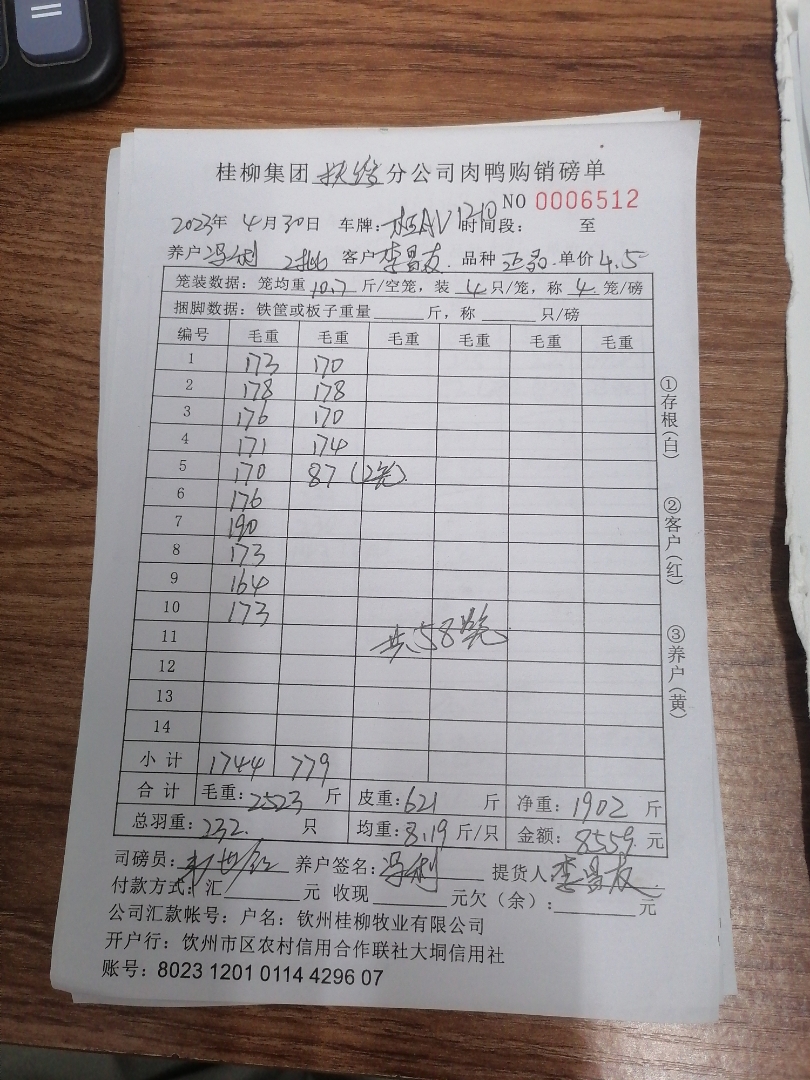 桂柳集团扶绥分公司肉鸭购销磅单
NO 0006512
2023年 4月30日 车牌: 桂AV1210 时间段: 至
养户冯利 2批 客户李昌友. 品种 单价4.5
笼装数据: 笼均重10.7斤/空笼, 装 4 只/笼, 称 4 笼/磅
捆脚数据: 铁筐或板子重量____斤, 称____只/磅
编号 毛重 毛重 毛重 毛重 毛重 毛重
1 173 170
2 178 178
3 176 170
4 171 174
5 170 87 (2笼)
6 176
7 190
8 173
9 164
10 173
11 共58笼
12
13
14
小计 1744 779
合计 毛重:2523 斤 皮重:621 斤 净重:1902 斤
总羽重:232. 只 均重:8.19斤/只 金额:8559.元
司磅员: 养户签名:冯利 提货人:李昌友
付款方式: 汇____元 收现____元欠(余):____元
公司汇款帐号: 户名: 钦州桂柳牧业有限公司
开户行: 钦州市区农村信用合作联社大垌信用社
账号: 8023 1201 0114 4296 07
①存根(白)
②客户(红)
③养户(黄)